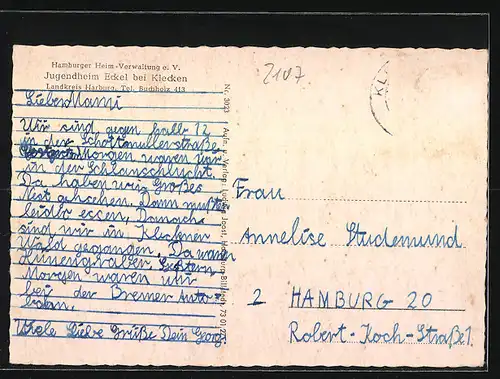 Hamburger Heim-Verwaltung e. V.
Jugendheim Eckel bei Klecken
Landkreis Harburg, Tel. Buchholz 413
2107
KL
Liebe Mami
Wir sind gegen halb 12
in der Schottmullerstraße
Morgen waren wir
in der Schlanschlucht.
Da haben wir Großes
Nest gesehen. Dann mußten
leider essen, Danach
sind wir in Kleckner
Wald gegangen. Da waren
Hünengräben. Gestern
Morgen waren wir
bei der Bremer Auto-
bahn.
Viele Liebe Grüße Dein Georg
Nr. 3023 Aufn. u. Verlag:
Frau
Annelise Studemund
2 HAMBURG 20
Robert-Koch-Straße 1.